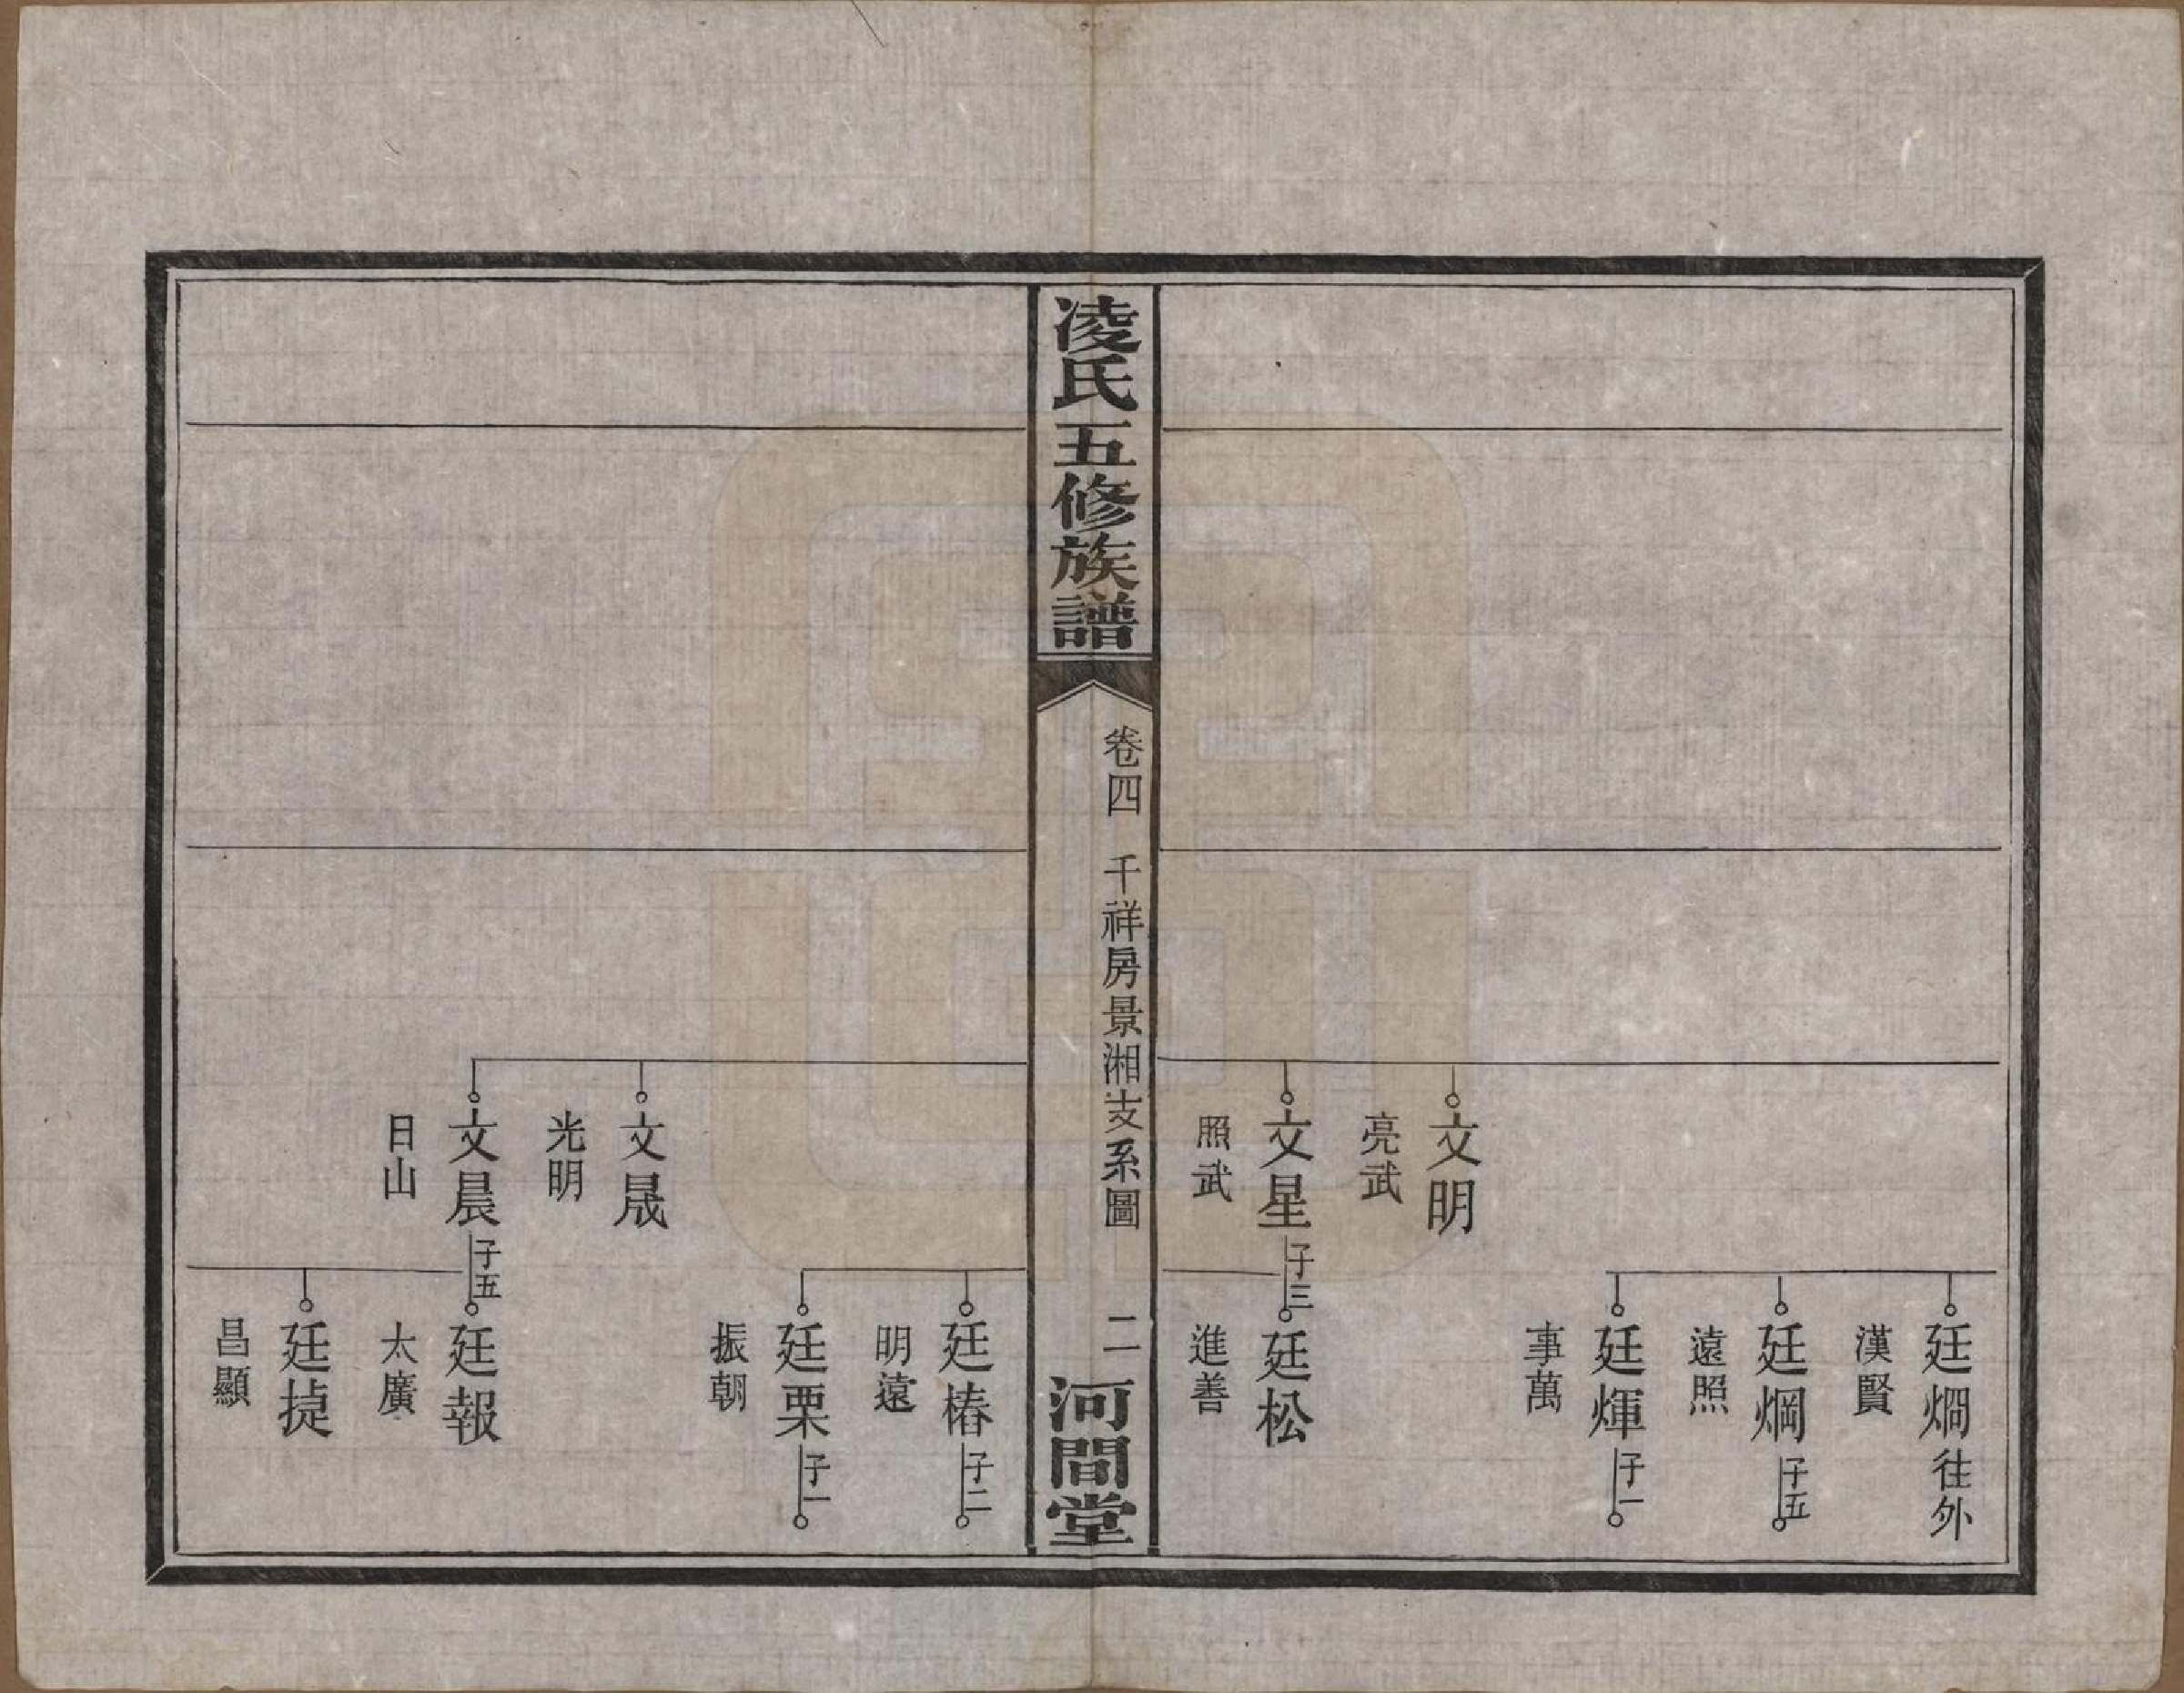 廷烱往外
漢賢
廷焹子五
遠照
廷煇子一
事萬
文明
亮武
文星子三
照武
廷松
進善
凌氏五修族譜
卷四 千祥房景湘支系圖 二
河間堂
廷椿子二
明遠
廷栗子一
振朝
文晟
光明
文晨子五
日山
廷報
太廣
廷㨗
昌顯